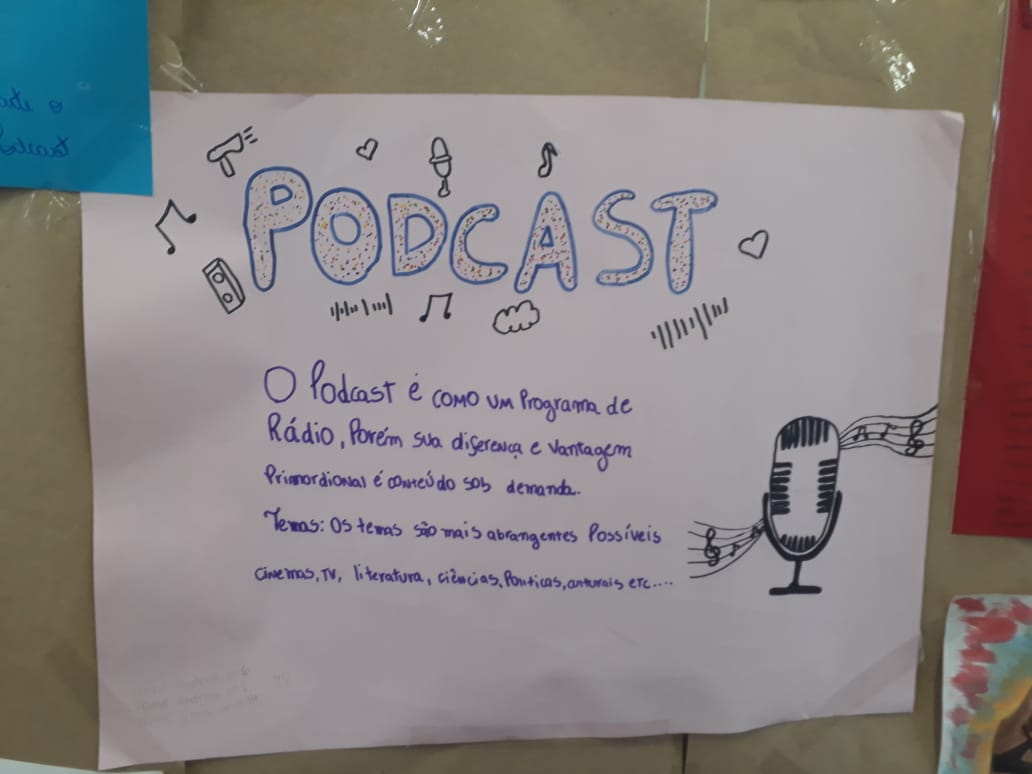 PODCAST
O Podcast é como um Programa de
Rádio, Porém sua diferença e vantagem
Primordional é conteúdo sob demanda.
Temas: Os temas são mais abrangentes Possíveis
cinemas, TV, literatura, ciências, Políticas, etc....